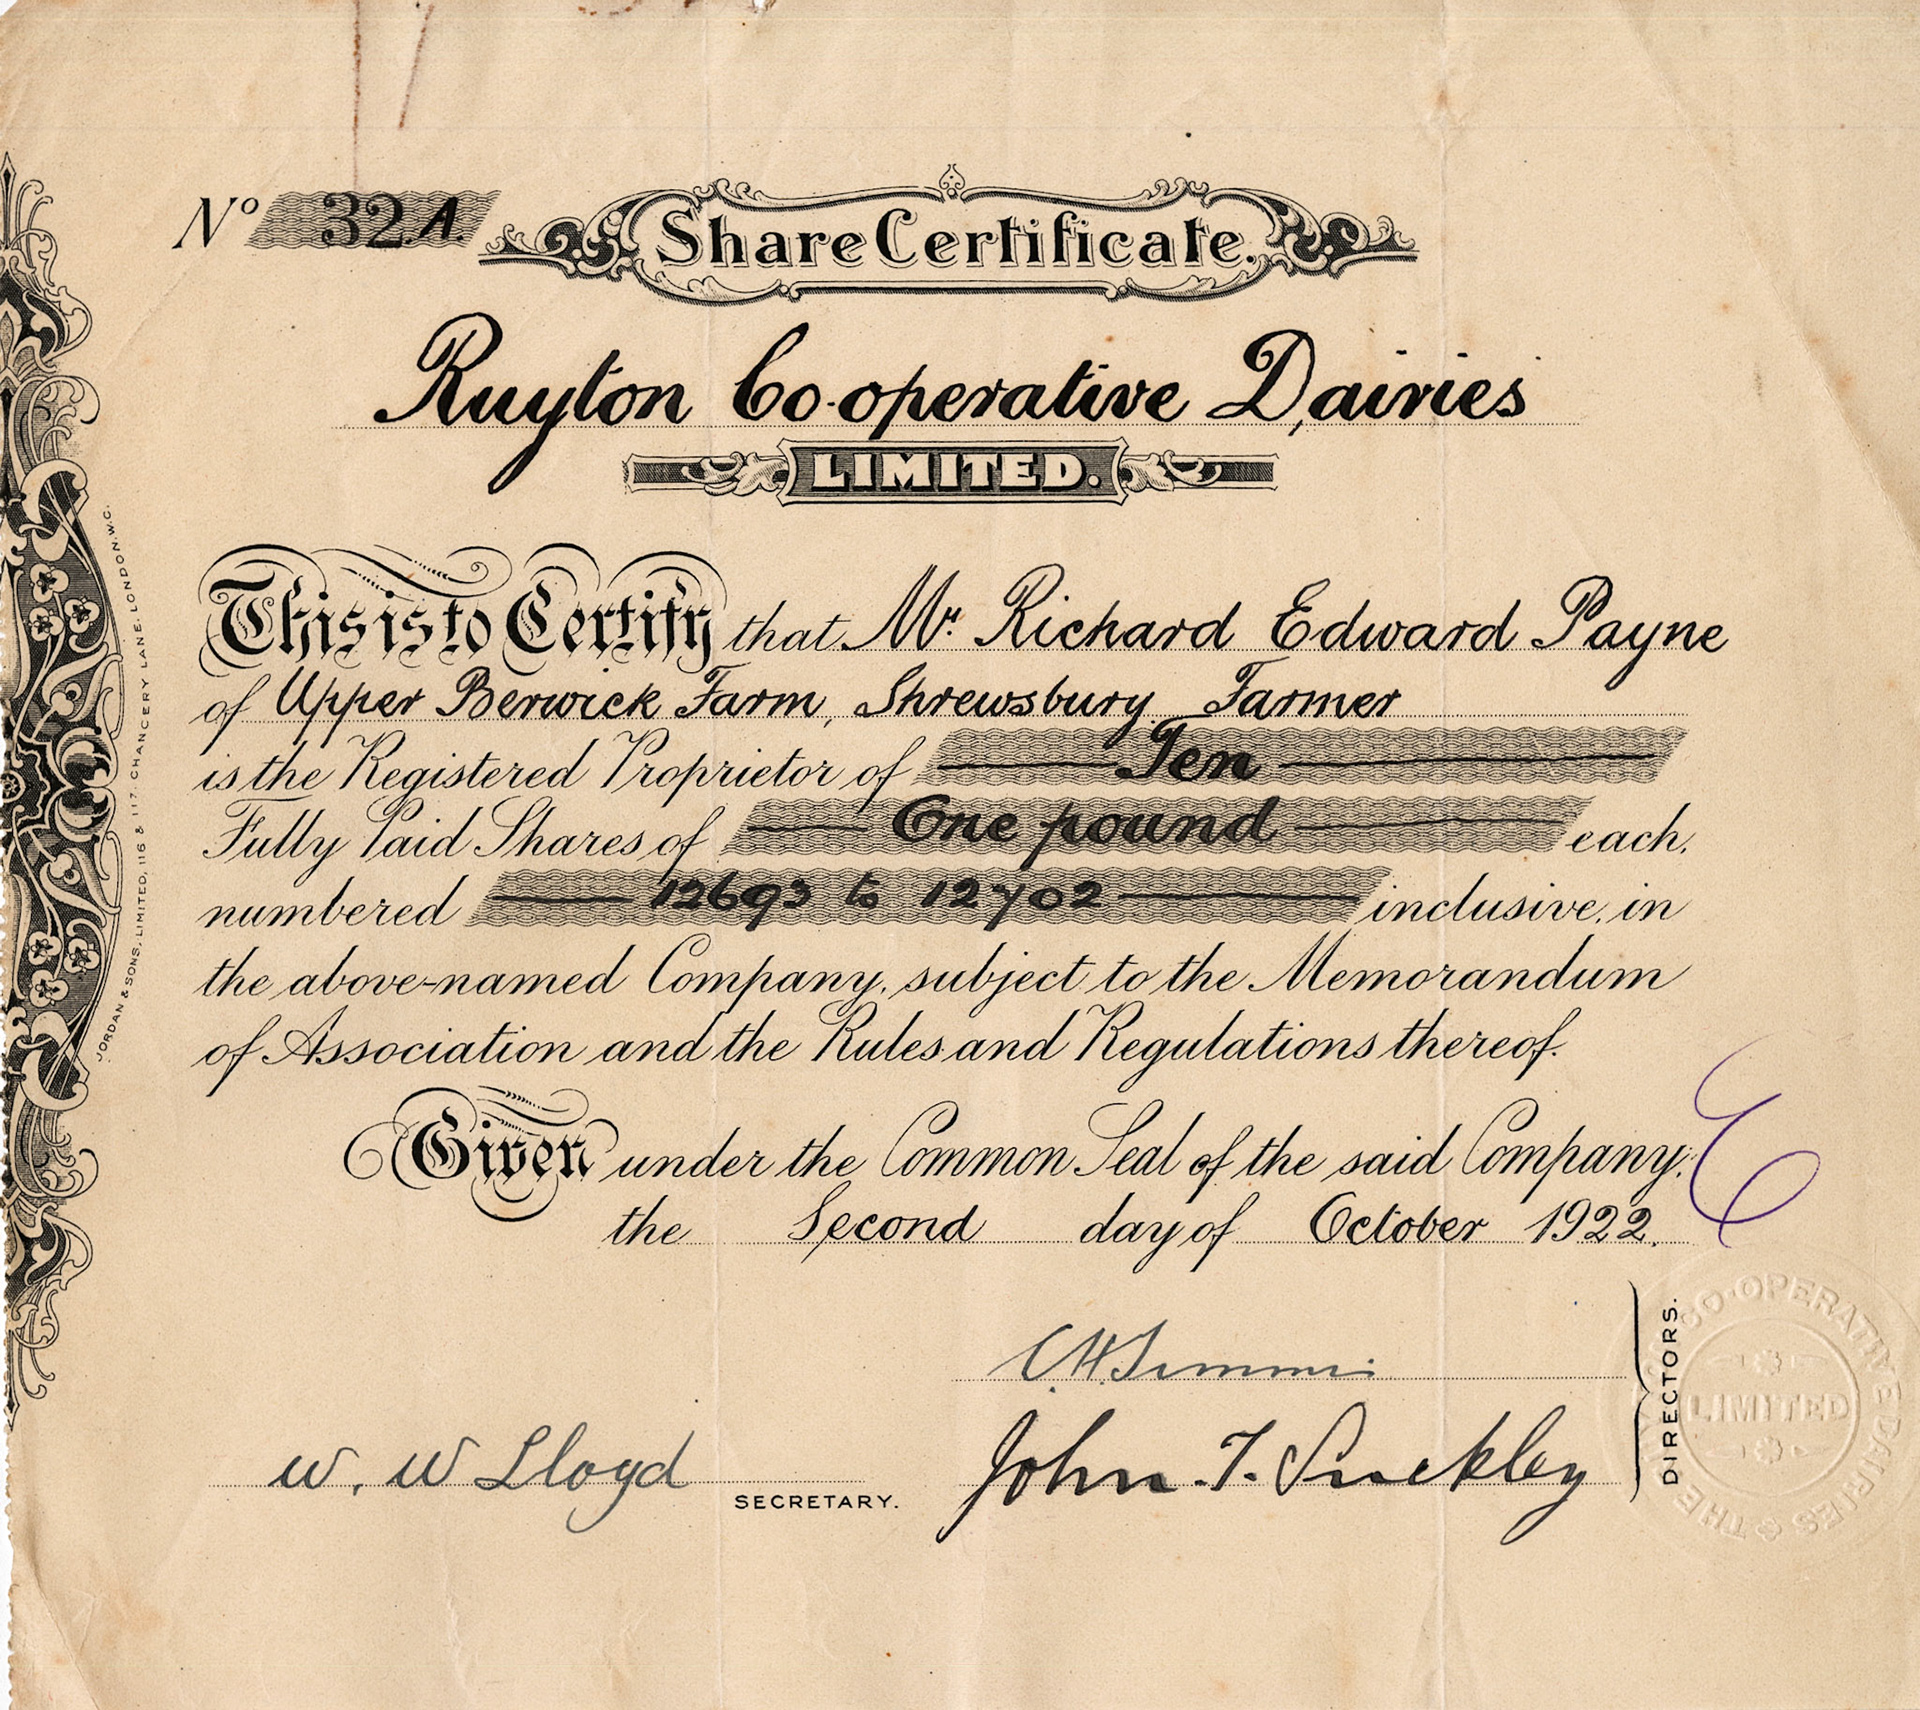 No 32.A.
Share Certificate.
Ruyton Co-operative Dairies
LIMITED.
This is to Certify that Mr. Richard Edward Payne
of Upper Berwick Farm, Shrewsbury. Farmer
is the Registered Proprietor of Ten
Fully Paid Shares of One pound each,
numbered 12693 to 12702 inclusive, in
the above-named Company, subject to the Memorandum
of Association and the Rules and Regulations thereof.
Given under the Common Seal of the said Company,
the Second day of October 1922.
C.H.
W. W Lloyd SECRETARY. John T.
DIRECTORS.
JORDAN & SONS, LIMITED, 116 & 117, CHANCERY LANE, LONDON, W.C.
THE CO-OPERATIVE DAIRIES
LIMITED